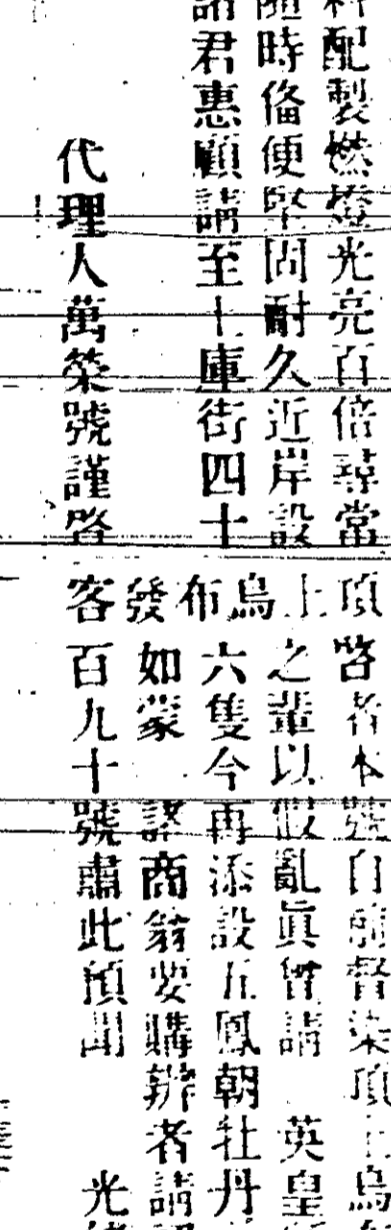 料配製燃燈光亮百倍尋常
隨時俻便堅固耐久近岸設
諸君惠顧請至十庫街四十
代理人萬榮號謹啓
頂上烏布發客
啓者本號自前督染頂上烏
之輩以假亂眞曾請 英皇
六隻今再添設五鳳朝牡丹
如蒙 諸商翁要購辦者請認
百九十號肅此預聞 光緒